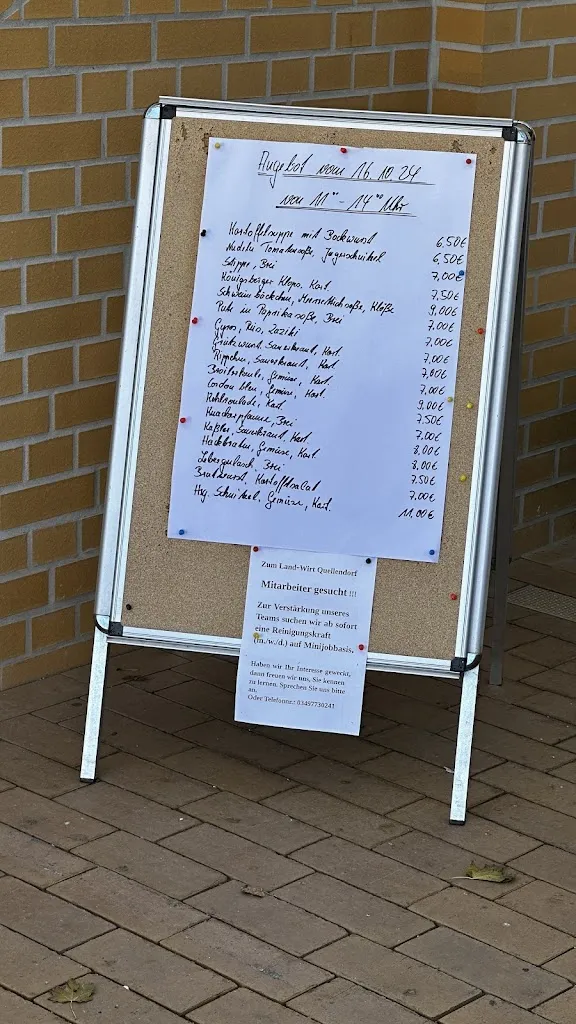 Angebot vom 16.10.24
von 11°° - 14°° Uhr
Kartoffelsuppe mit Bockwurst 6,50€
Nudeln Tomatensoße, Jägerschnitzel 6,50€
Stippe, Brei 7,00€
Königsberger Klops, Kart. 7,50€
Schweinebäckchen, Meerrettichsoße, Klöße 9,00€
Pute in Paprikasoße, Brei 7,00€
Gyros, Reis, Zaziki 7,00€
Grützwurst, Sauerkraut, Kart. 7,00€
Rippchen, Sauerkraut, Kart. 7,00€
Broilerkeule, Gemüse, Kart. 7,00€
Cordon bleu, Gemüse, Kart. 9,00€
Kohlroulade, Kart. 7,50€
Knackerpfanne, Brei 7,00€
Kaßler, Sauerkraut, Kart. 8,00€
Hackbraten, Gemüse, Kart. 8,00€
Lebergulasch, Brei 7,50€
Bratwurst, Kartoffelsalat 7,00€
Hrg. Schnitzel, Gemüse, Kart. 11,00€
Zum Land-Wirt Quellendorf
Mitarbeiter gesucht !!!
Zur Verstärkung unseres
Teams suchen wir ab sofort
eine Reinigungskraft
(m./w./d.) auf Minijobbasis,
Haben wir Ihr Interesse geweckt,
dann freuen wir uns, Sie kennen
zu lernen. Sprechen Sie uns bitte
an.
Oder Telefonnr.: 03497730241